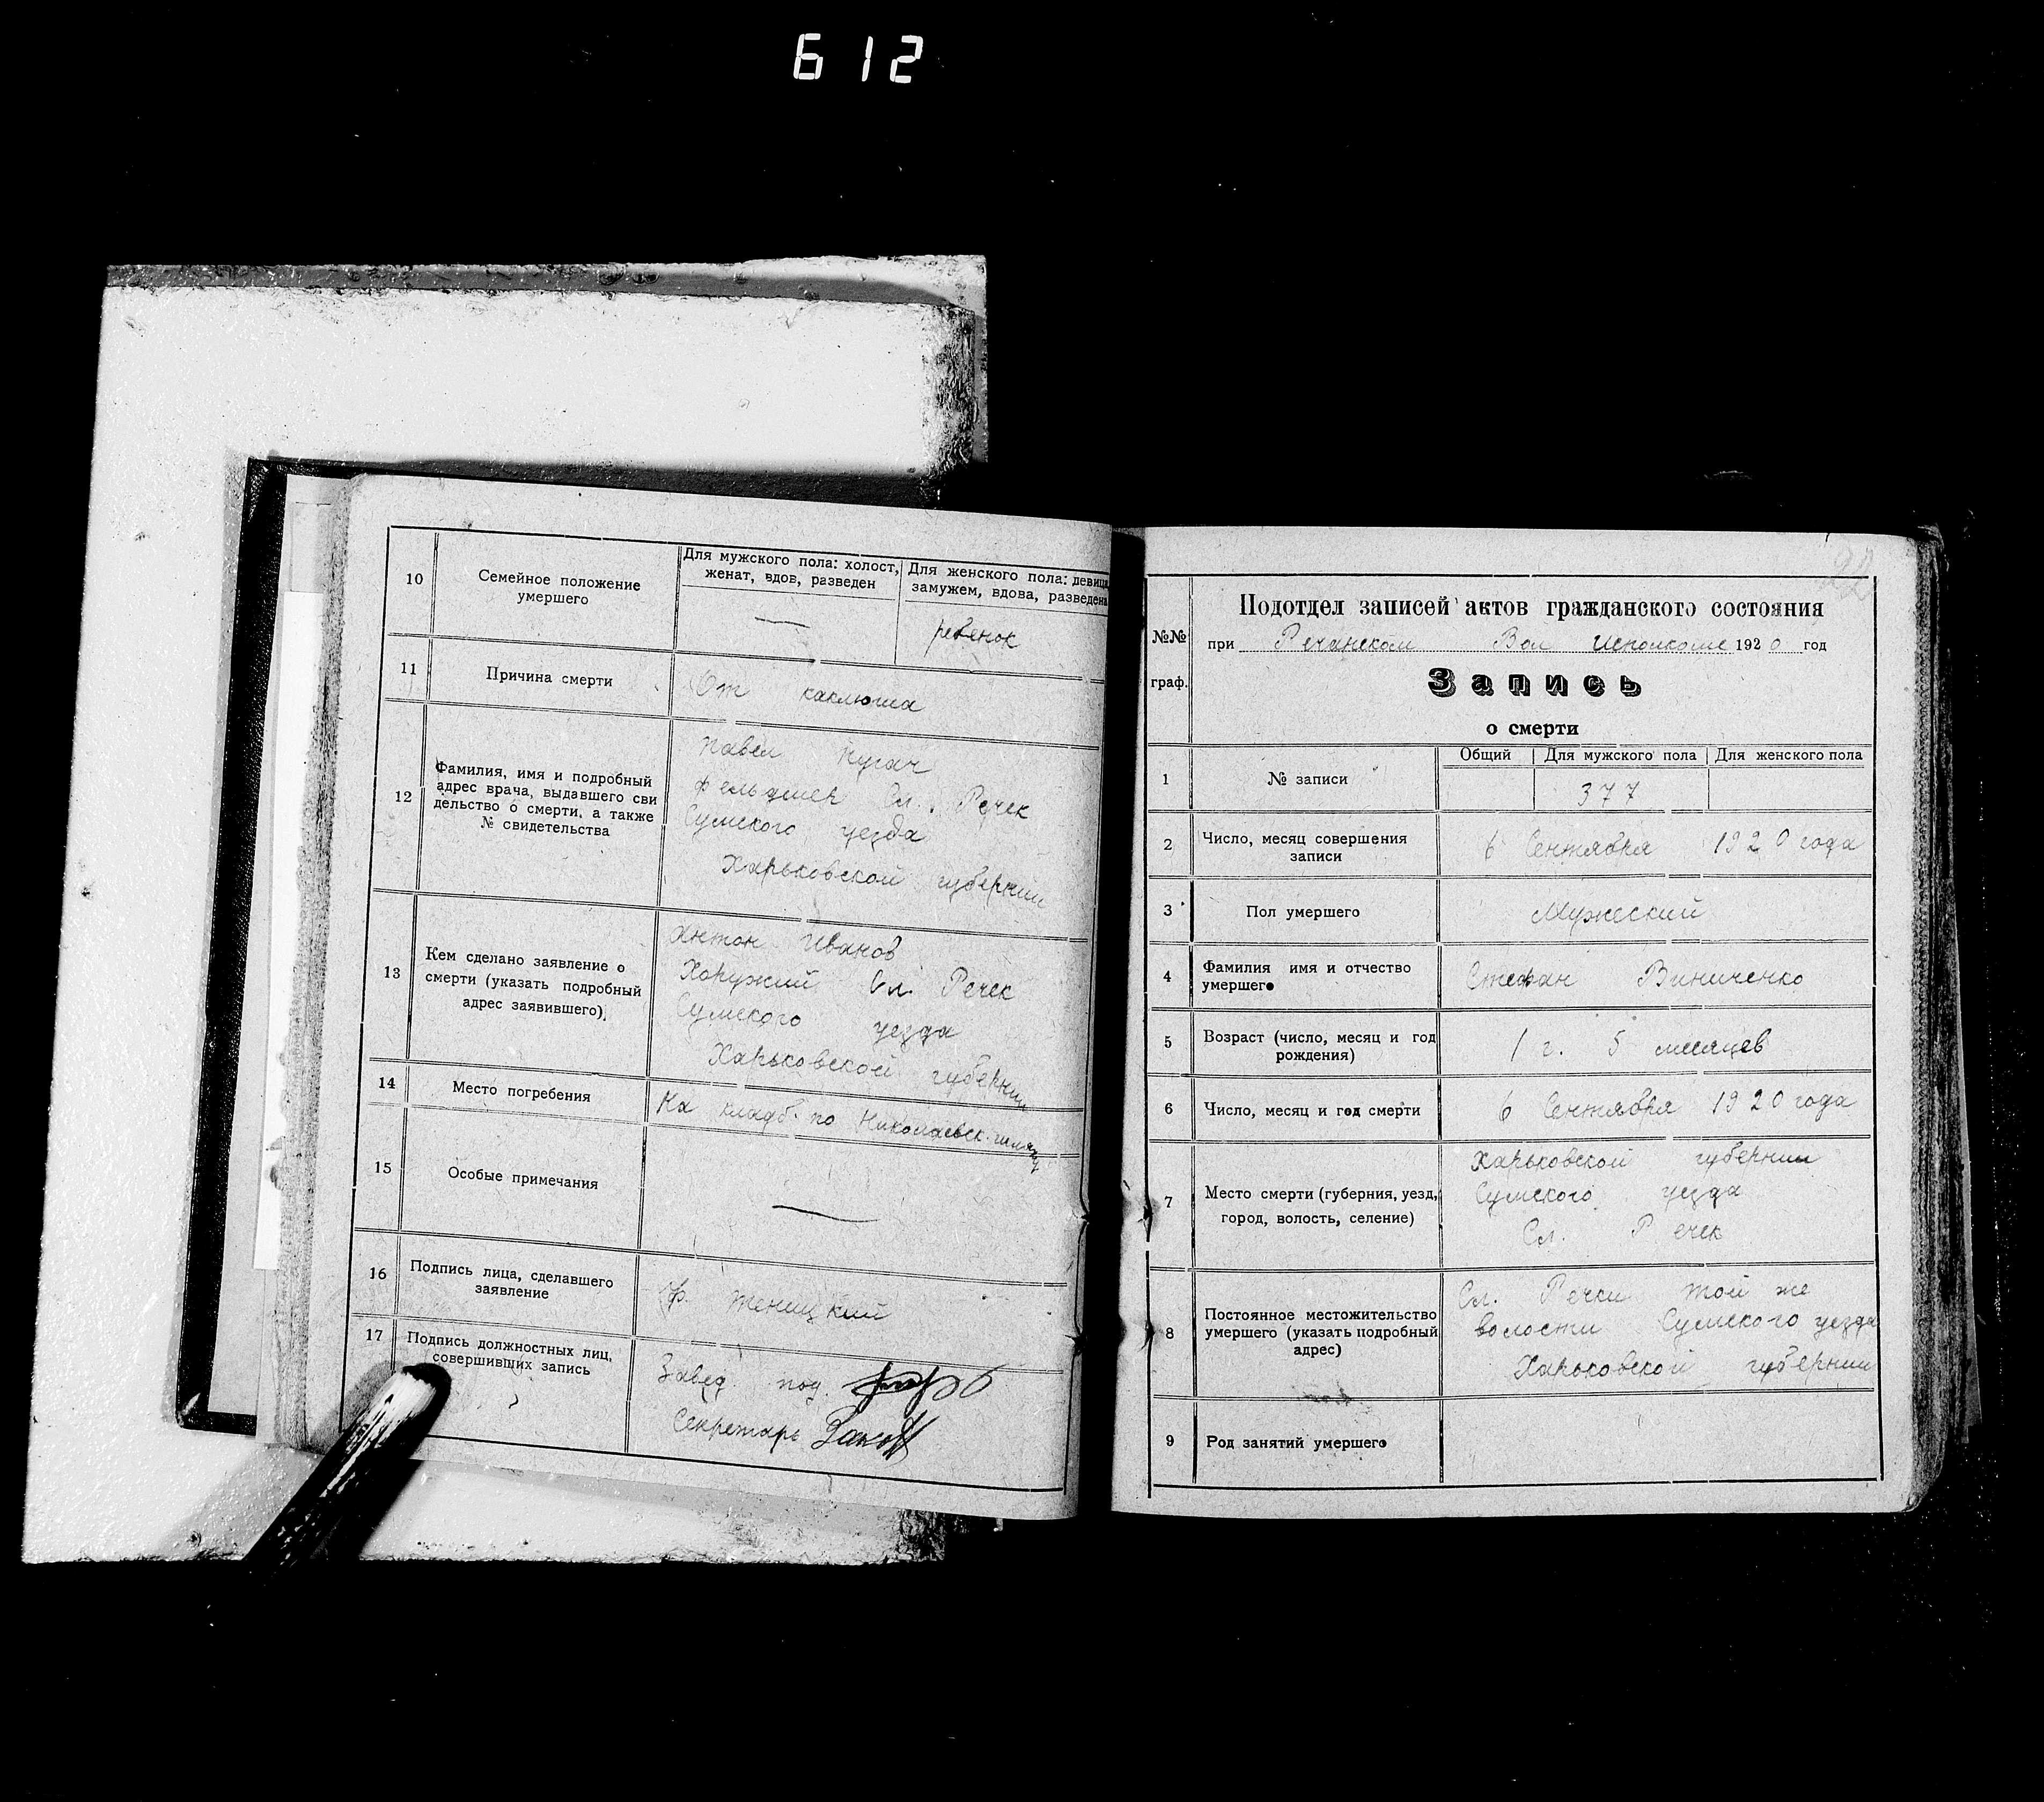 612
10
Семейное положение
умершего
Для мужского пола: холост,
женат, вдов, разведен
Для женского пола: девица,
замужем, вдова, разведена
—
ребенок
11
Причина смерти
От каклюша
12
Фамилия, имя и подробный
адрес врача, выдавшего сви
дельство о смерти, а также
№ свидетельства
Павел Пугач
фельдшер Сл. Речек
Сумского уезда
Харьковской губернии
13
Кем сделано заявление о
смерти (указать подробный
адрес заявившего)
Антон Иванов
Хоружий Сл. Речек
Сумского уезда
Харьковской губернии
14
Место погребения
На кладб. по Николаевск. шляху
15
Особые примечания
—
16
Подпись лица, сделавшего
заявление
17
Подпись должностных лиц,
совершивших запись
Завед. под.
Секретарь
92
№№
граф.
Подотдел записей актов гражданского состояния
при Речанском Вол Исполкоме 1920 год
Запись
о смерти
1
№ записи
Общий
Для мужского пола
Для женского пола
377
2
Число, месяц совершения
записи
6 Сентября 1920 года
3
Пол умершего
Мужеский
4
Фамилия имя и отчество
умершего
Стефан Виниченко
5
Возраст (число, месяц и год
рождения)
1 г. 5 месяцев
6
Число, месяц и год смерти
6 Сентября 1920 года
7
Место смерти (губерния, уезд,
город, волость, селение)
Харьковской губернии
Сумского уезда
Сл. Речек
8
Постоянное местожительство
умершего (указать подробный
адрес)
Сл. Речки той же
волости Сумского уезда
Харьковской губернии
9
Род занятий умершего